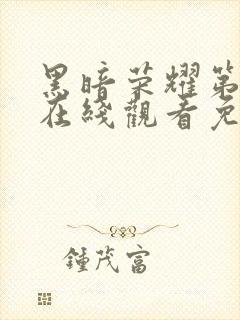 黑暗荣耀第
在线觀看免
鍾茂富